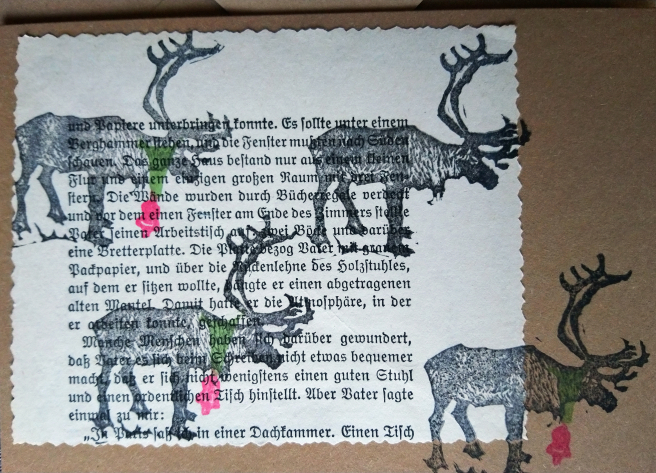 und Papiere unterbringen konnte. Es sollte unter einem
Berghammer stehen, und die Fenster mußten nach Süden
schauen. Das ganze Haus bestand nur aus einem kleinen
Flur und einem einzigen großen Raum mit drei Fen-
stern. Die Wände wurden durch Bücherregale verdeckt
und vor dem einen Fenster am Ende des Zimmers stellte
Vater seinen Arbeitstisch zwei Böcke und darüber
eine Bretterplatte. Die Platte bezog Vater mit grauem
Packpapier, und über die Rückenlehne des Holzstuhles,
auf dem er sitzen wollte, hängte er einen abgetragenen
alten Mantel. Damit hatte er die Atmosphäre, in der
er arbeiten konnte, geschaffen.
Manche Menschen haben sich darüber gewundert,
daß Vater es sich beim Schreiben nicht etwas bequemer
macht, daß er sich nicht wenigstens einen guten Stuhl
und einen ordentlichen Tisch hinstellt. Aber Vater sagte
einmal zu mir:
„In Paris saß ich in einer Dachkammer. Einen Tisch